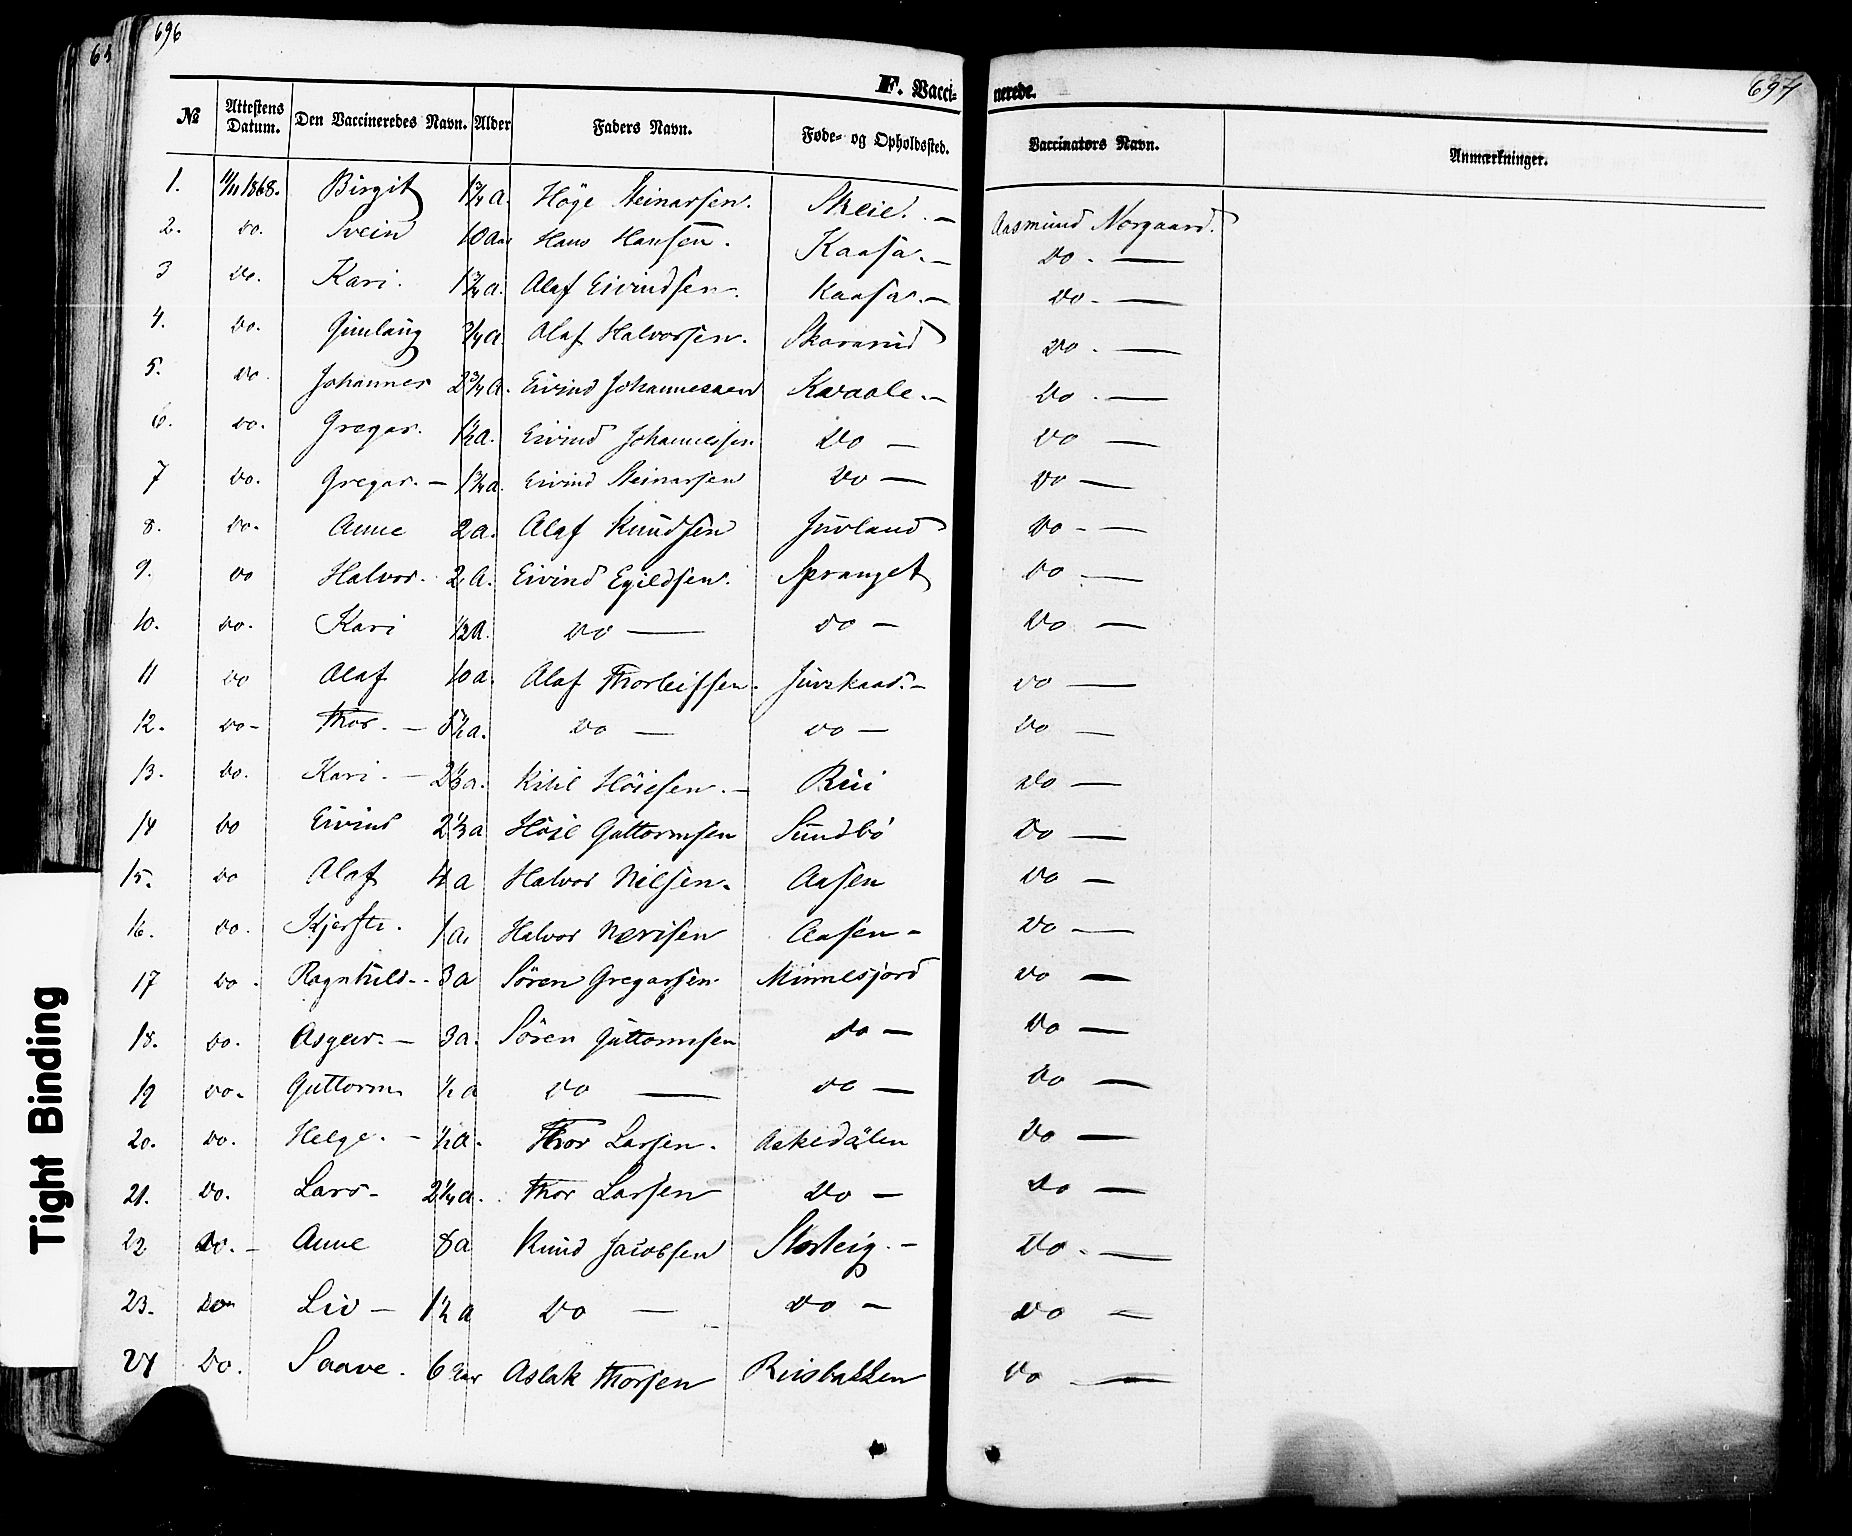 696
697
F. Vaccinerede.
№ Attestens Datum. Den Vaccineredes Navn. Alder Faders Navn. Føde- og Opholdssted. Vaccinators Navn. Anmærkninger.
1. 11/11 1868. Birgit 1¾ a. Höge Steinarsen. Skeie. — Aasmund Norgaard.
2. Do. Svein 10 Aar Hans Hansen. Kaasa. — Do. —
3 Do. Kari. 1¾ a. Olaf Eivindsen. Kaasa. — Do. —
4. Do. Gunlaug ¾ a Olaf Halvorsen. Skararud Do. —
5. Do. Johannes 2¾ a. Eivind Johannessen Kvaale. — Do. —
6. Do. Gregar. 1½ a. Eivind Johannessen Do — Do —
7 Do. Gregar. — 1¾ a. Eivind Steinarsen Do — Do —
8. Do. Anne 2 a. Olaf Knudsen Juvland Do - —
9. Do Halvor. 2 a. Eivind Egildsen. Spranget Do. —
10. Do. Kari ½ a. Do — Do — Do —
11 Do Olaf 10 a. Olaf Thorleifsen. Juvskaas. — Do —
12. Do - Thor. — 8½ a. Do — Do — Do —
13. Do. Kari. — 2⅓ a. Kitil Höiesen. — Rui Do —
14 Do Eivind 2⅓ a Höie Guttormsen Sundbö Do —
15. Do Olaf 4 a Halvor Nilsen. Aasen Do —
16. Do. Kjersti. 1 a. Halvor Nerisen Aasen - Do —
17 Do. Ragnhild. - 3 a Sören Gregarsen Minnesjord Do —
18. Do. Asgeir. — 3 a. Sören Guttormsen Do — Do —
19 Do. Guttorm ½ a Do — Do — Do —
20. Do. Helge. — ½ a. Thor Larsen. Askedålen Do —
21. Do. Lars - 2¼ a. Thor Larsen Do — Do —
22 Do. — Anne 8 a Knud Jacobsen Storteig. — Do. —
23. Do Liv — 1½ a Do — Do — Do —
24 Do. Saave. 6 Aar Aslak Thorsen Ruisbakken Do. —
Tight Binding